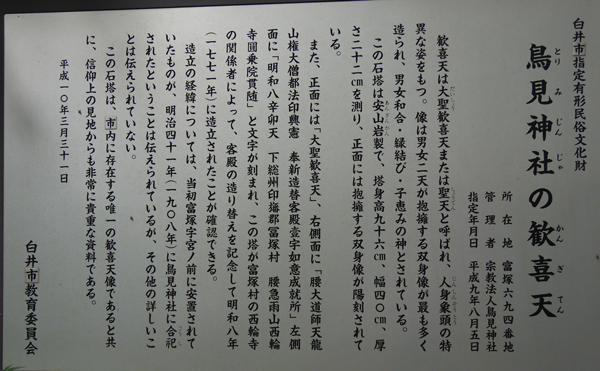 白井市指定有形民俗文化財
鳥見神社の歓喜天
とりみじんじゃ かんぎてん
所在地 富塚六九四番地
管理者 宗教法人鳥見神社
指定年月日 平成九年八月五日
歓喜天は大聖歓喜天または聖天と呼ばれ、人身象頭の特
異な姿をもつ。像は男女二天が抱擁する双身像が最も多く
造られ、男女和合・縁結び・子恵みの神とされている。
この石塔は安山岩製で、塔身高九十六㎝、幅四〇㎝、厚
さ二十二㎝を測り、正面には抱擁する双身像が陽刻されて
いる。
また、正面には「大聖歓喜天」、右側面に「腰大道師天龍
山権大僧都法印興憲 奉新造替客殿壹宇如意成就所」左側
面に「明和八辛卯天 下総州印旛郡冨塚村 腰急雨山西輪
寺圓乗院貫随」と文字が刻まれ、この塔が富塚村の西輪寺
の関係者によって、客殿の造り替えを記念して明和八年
(一七七一年)に造立されたことが確認できる。
造立の経緯については、当初富塚字宮ノ前に安置されて
いたものが、明治四十一年(一九〇八年)に鳥見神社に合祀
されたということは伝えられているが、その他の詳しいこ
とは伝えられていない。
この石塔は、市内に存在する唯一の歓喜天像であると共
に、信仰上の見地からも非常に貴重な資料である。
平成一〇年三月三十一日
白井市教育委員会